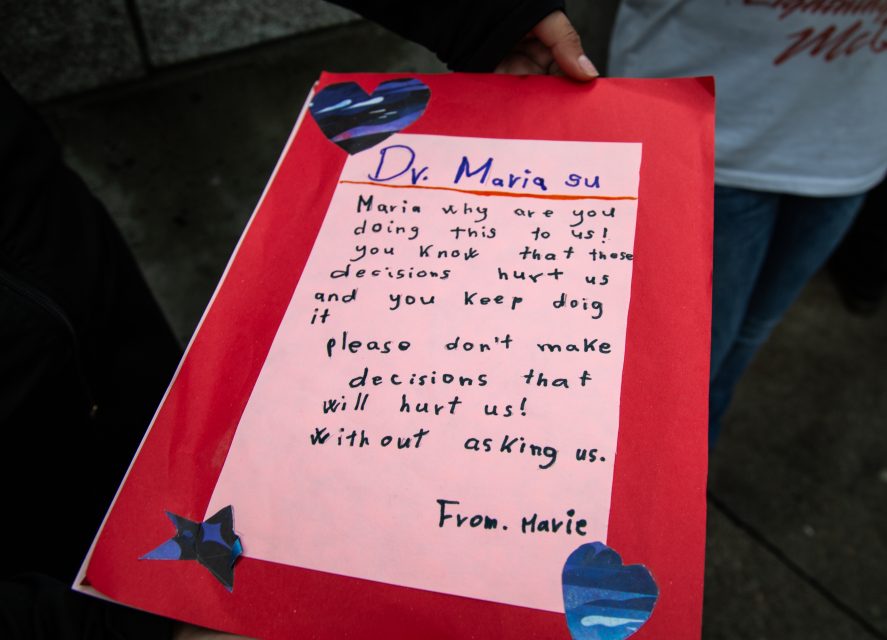 Dr. Maria su
Maria why are you
doing this to us!
you Know that those
decisions hurt us
and you keep doig
it
please don't make
decisions that
will hurt us!
without asking us.
From. Marie